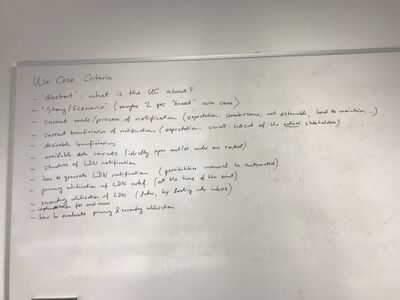 Use Case Criteria
- "Abstract": what is the UC about?
- "Story/Scenario" (maybe 2 per "broad" use case)
- current mode/process of notification (expectation: cumbersome, not extensible, hard to maintain, ...)
- current beneficiaries of notification (expectation: small subset of the actual stakeholders)
- desirable beneficiaries
- available data sources (ideally open and/or under our control)
- structure of LDN notification
- how to generate LDN notifications (possibilities: manual to automated)
- primary utilisation of LDN notif. (at the time of the event)
- secondary utilisation of LDN (later, by looking into inbox)
- implications for end users
- how to evaluate primary & secondary utilisation